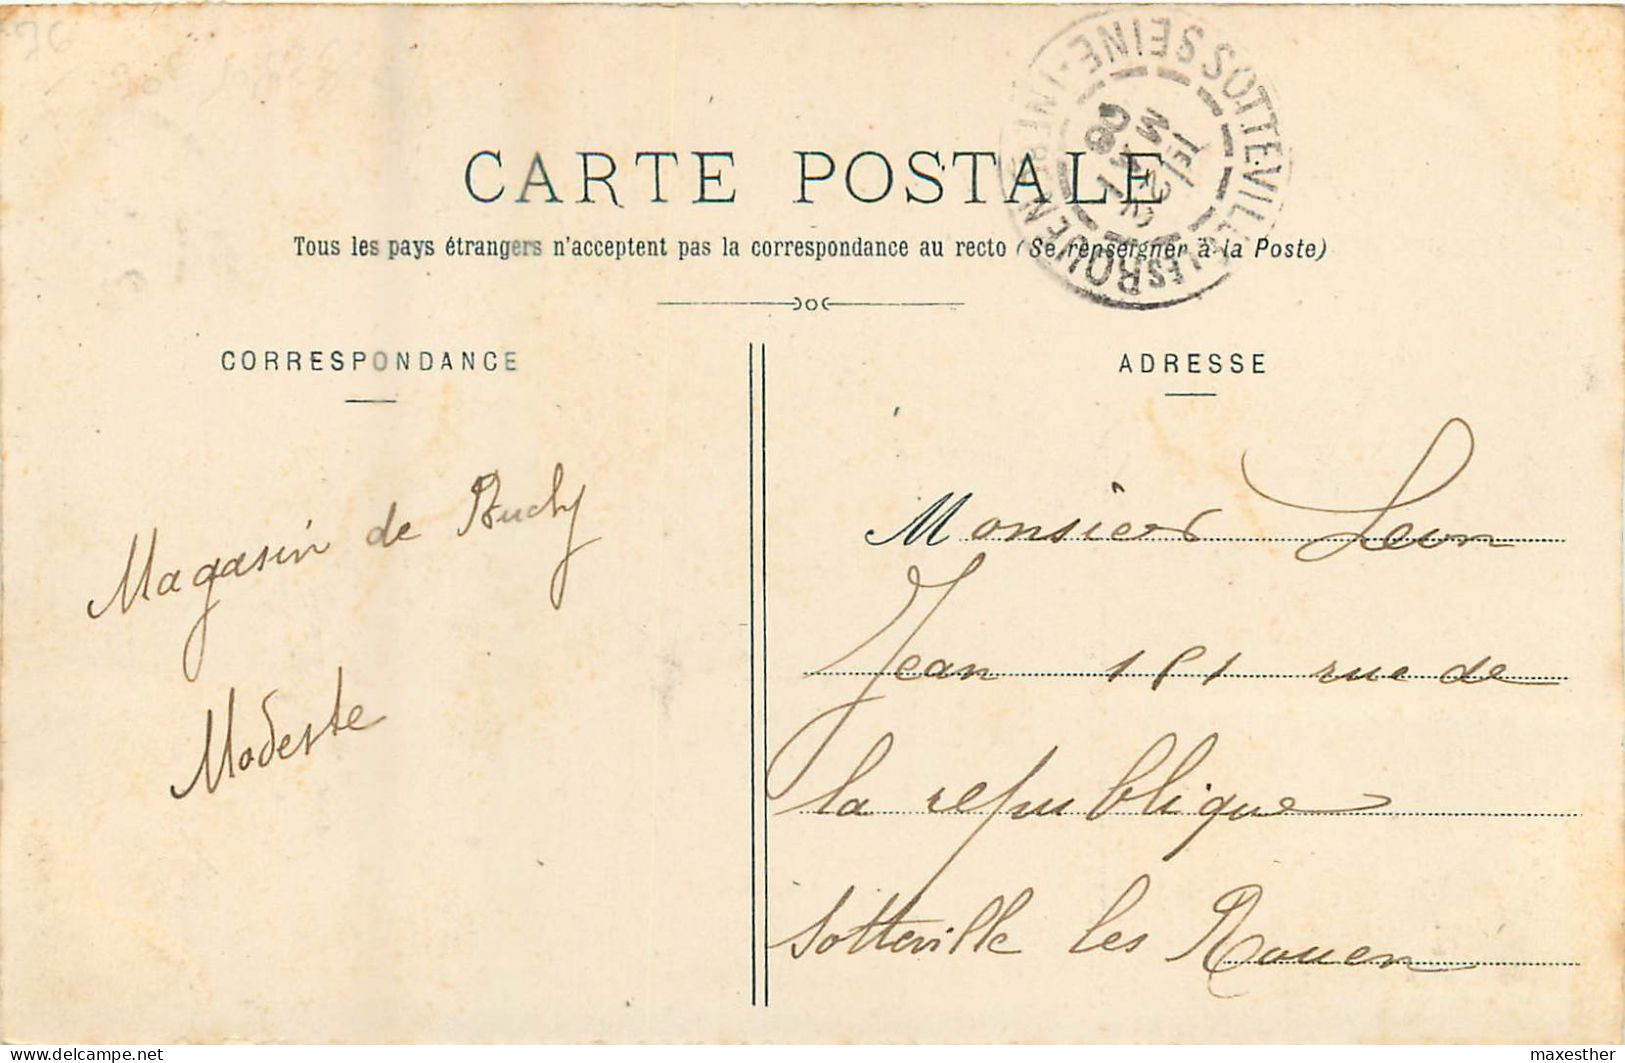 CARTE POSTALE
Tous les pays étrangers n'acceptent pas la correspondance au recto (Se renseigner à la Poste)
CORRESPONDANCE
ADRESSE
SOTTEVILLE-LES-ROUEN
SEINE-INFRE
08
Magasin de Buchy
Modeste
Monsieur Leon
Jean 161 rue de
la republique
Sotteville les Rouen
delcampe.net
maxesther